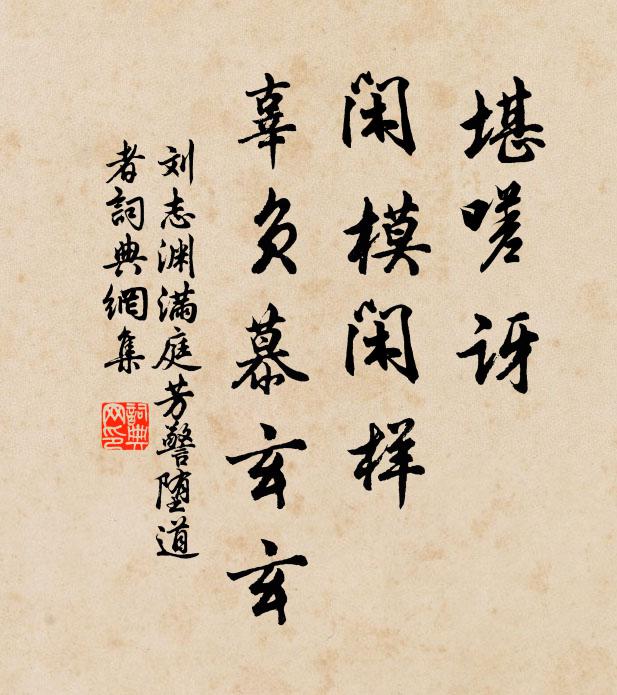 堪嗟讶
闲模闲样
辜负慕玄玄
刘志渊满庭芳警堕道
者詞典網集
詞典网印